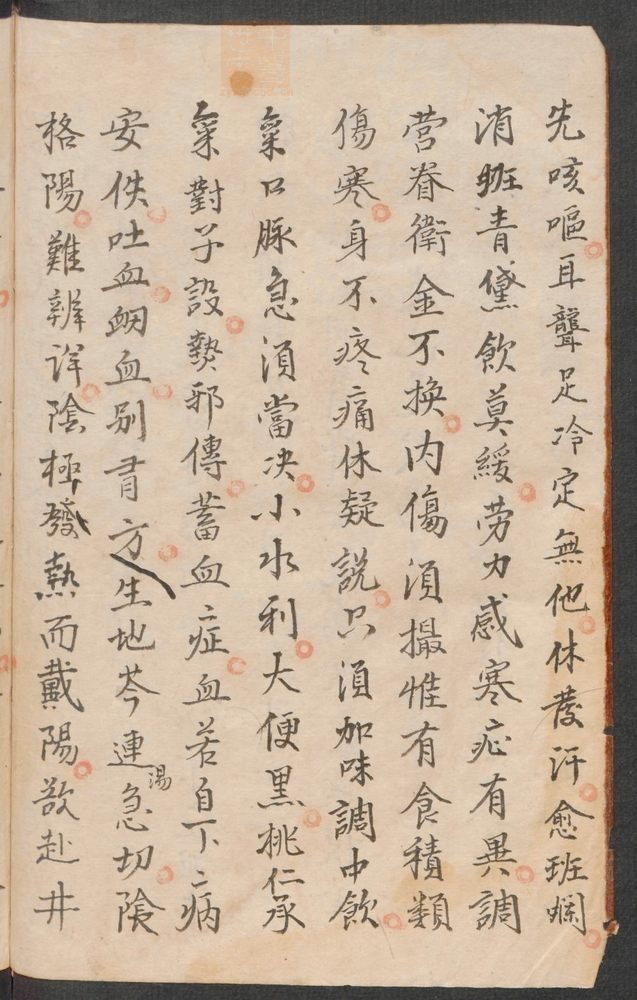 先咳嘔耳聾足冷定無他休發汗愈班斕
消班青黛飲莫緩劳力感寒症有異調
营眷衛金不換内傷須撮惟有食積類
傷寒身不疼痛休疑說只須加味調中飲
氣口脉急須當决小水利大便黑桃仁承
氣對子設熱邪傳蓄血症血若自下二病
安佚吐血衂血别有方生地芩連湯急切陰
格陽難辨详陰極發熱而戴陽欲赴井